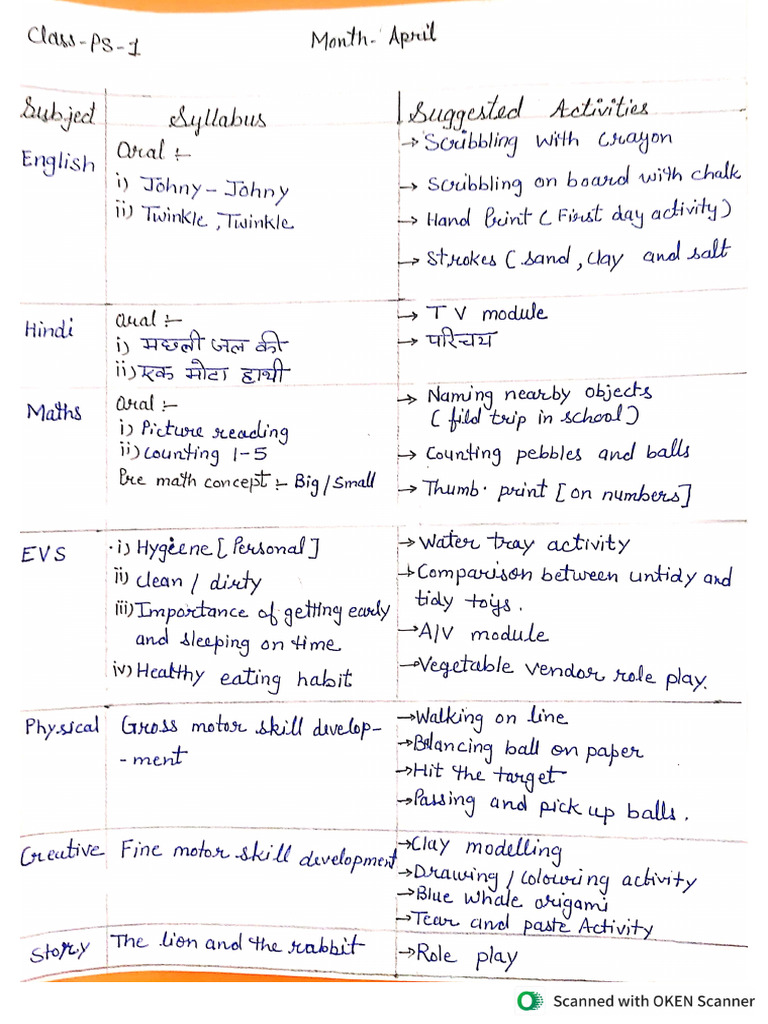 Class-PS-1 Month- April
Subject Syllabus Suggested Activities
English Oral :-
i) Johny - Johny
ii) Twinkle, Twinkle
→ Scribbling with crayon
→ Scribbling on board with chalk
→ Hand Print ( First day activity )
→ Strokes ( sand, clay and salt
Hindi Oral :-
i) मछली जल की
ii) एक मोटा हाथी
→ TV module
→ परिचय
Maths Oral :-
i) Picture reading
ii) Counting 1-5
Pre math concept :- Big / Small
→ Naming nearby objects
( fild trip in school )
→ Counting pebbles and balls
→ Thumb. print [ on numbers ]
EVS i) Hygiene [ Personal ]
ii) clean / dirty
iii) Importance of getting early
and sleeping on time
iv) Healthy eating habit
→ Water tray activity
→ Comparison between untidy and
tidy toys.
→ A/V module
→ Vegetable vendor role play.
Physical Gross motor skill develop-
-ment
→ Walking on line
→ Balancing ball on paper
→ Hit the target
→ Passing and pick up balls.
Creative Fine motor skill development
→ Clay modelling
→ Drawing / Colouring activity
→ Blue whale origami
→ Tear and paste Activity
Story The lion and the rabbit
→ Role play
Scanned with OKEN Scanner